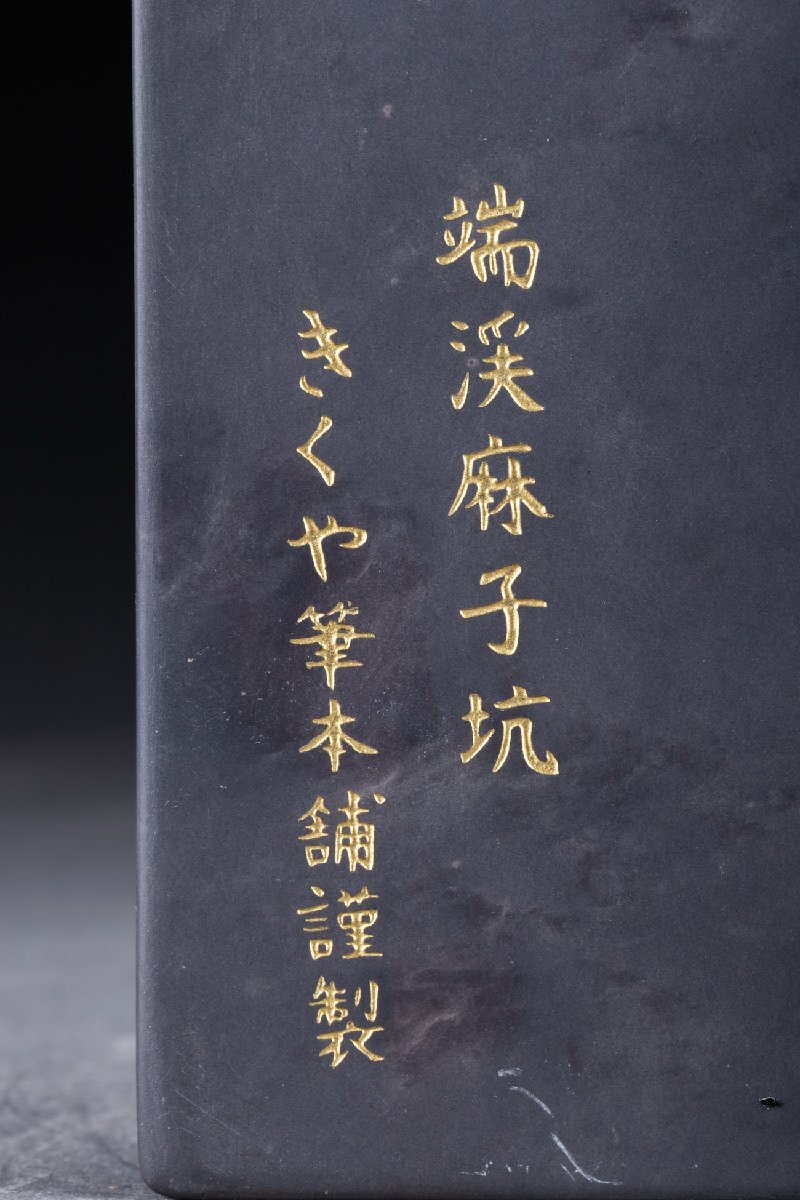 端渓麻子坑
きくや筆本舖謹製